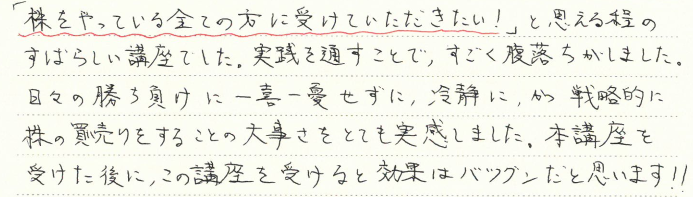 「株をやっている全ての方に受けていただきたい!」と思える程の
すばらしい講座でした。実践を通すことで、すごく腹落ちがしました。
日々の勝ち負けに一喜一憂せずに、冷静に、かつ戦略的に
株の買売りをすることの大事さをとても実感しました。本講座を
受けた後に、この講座を受けると効果はバツグンだと思います!!